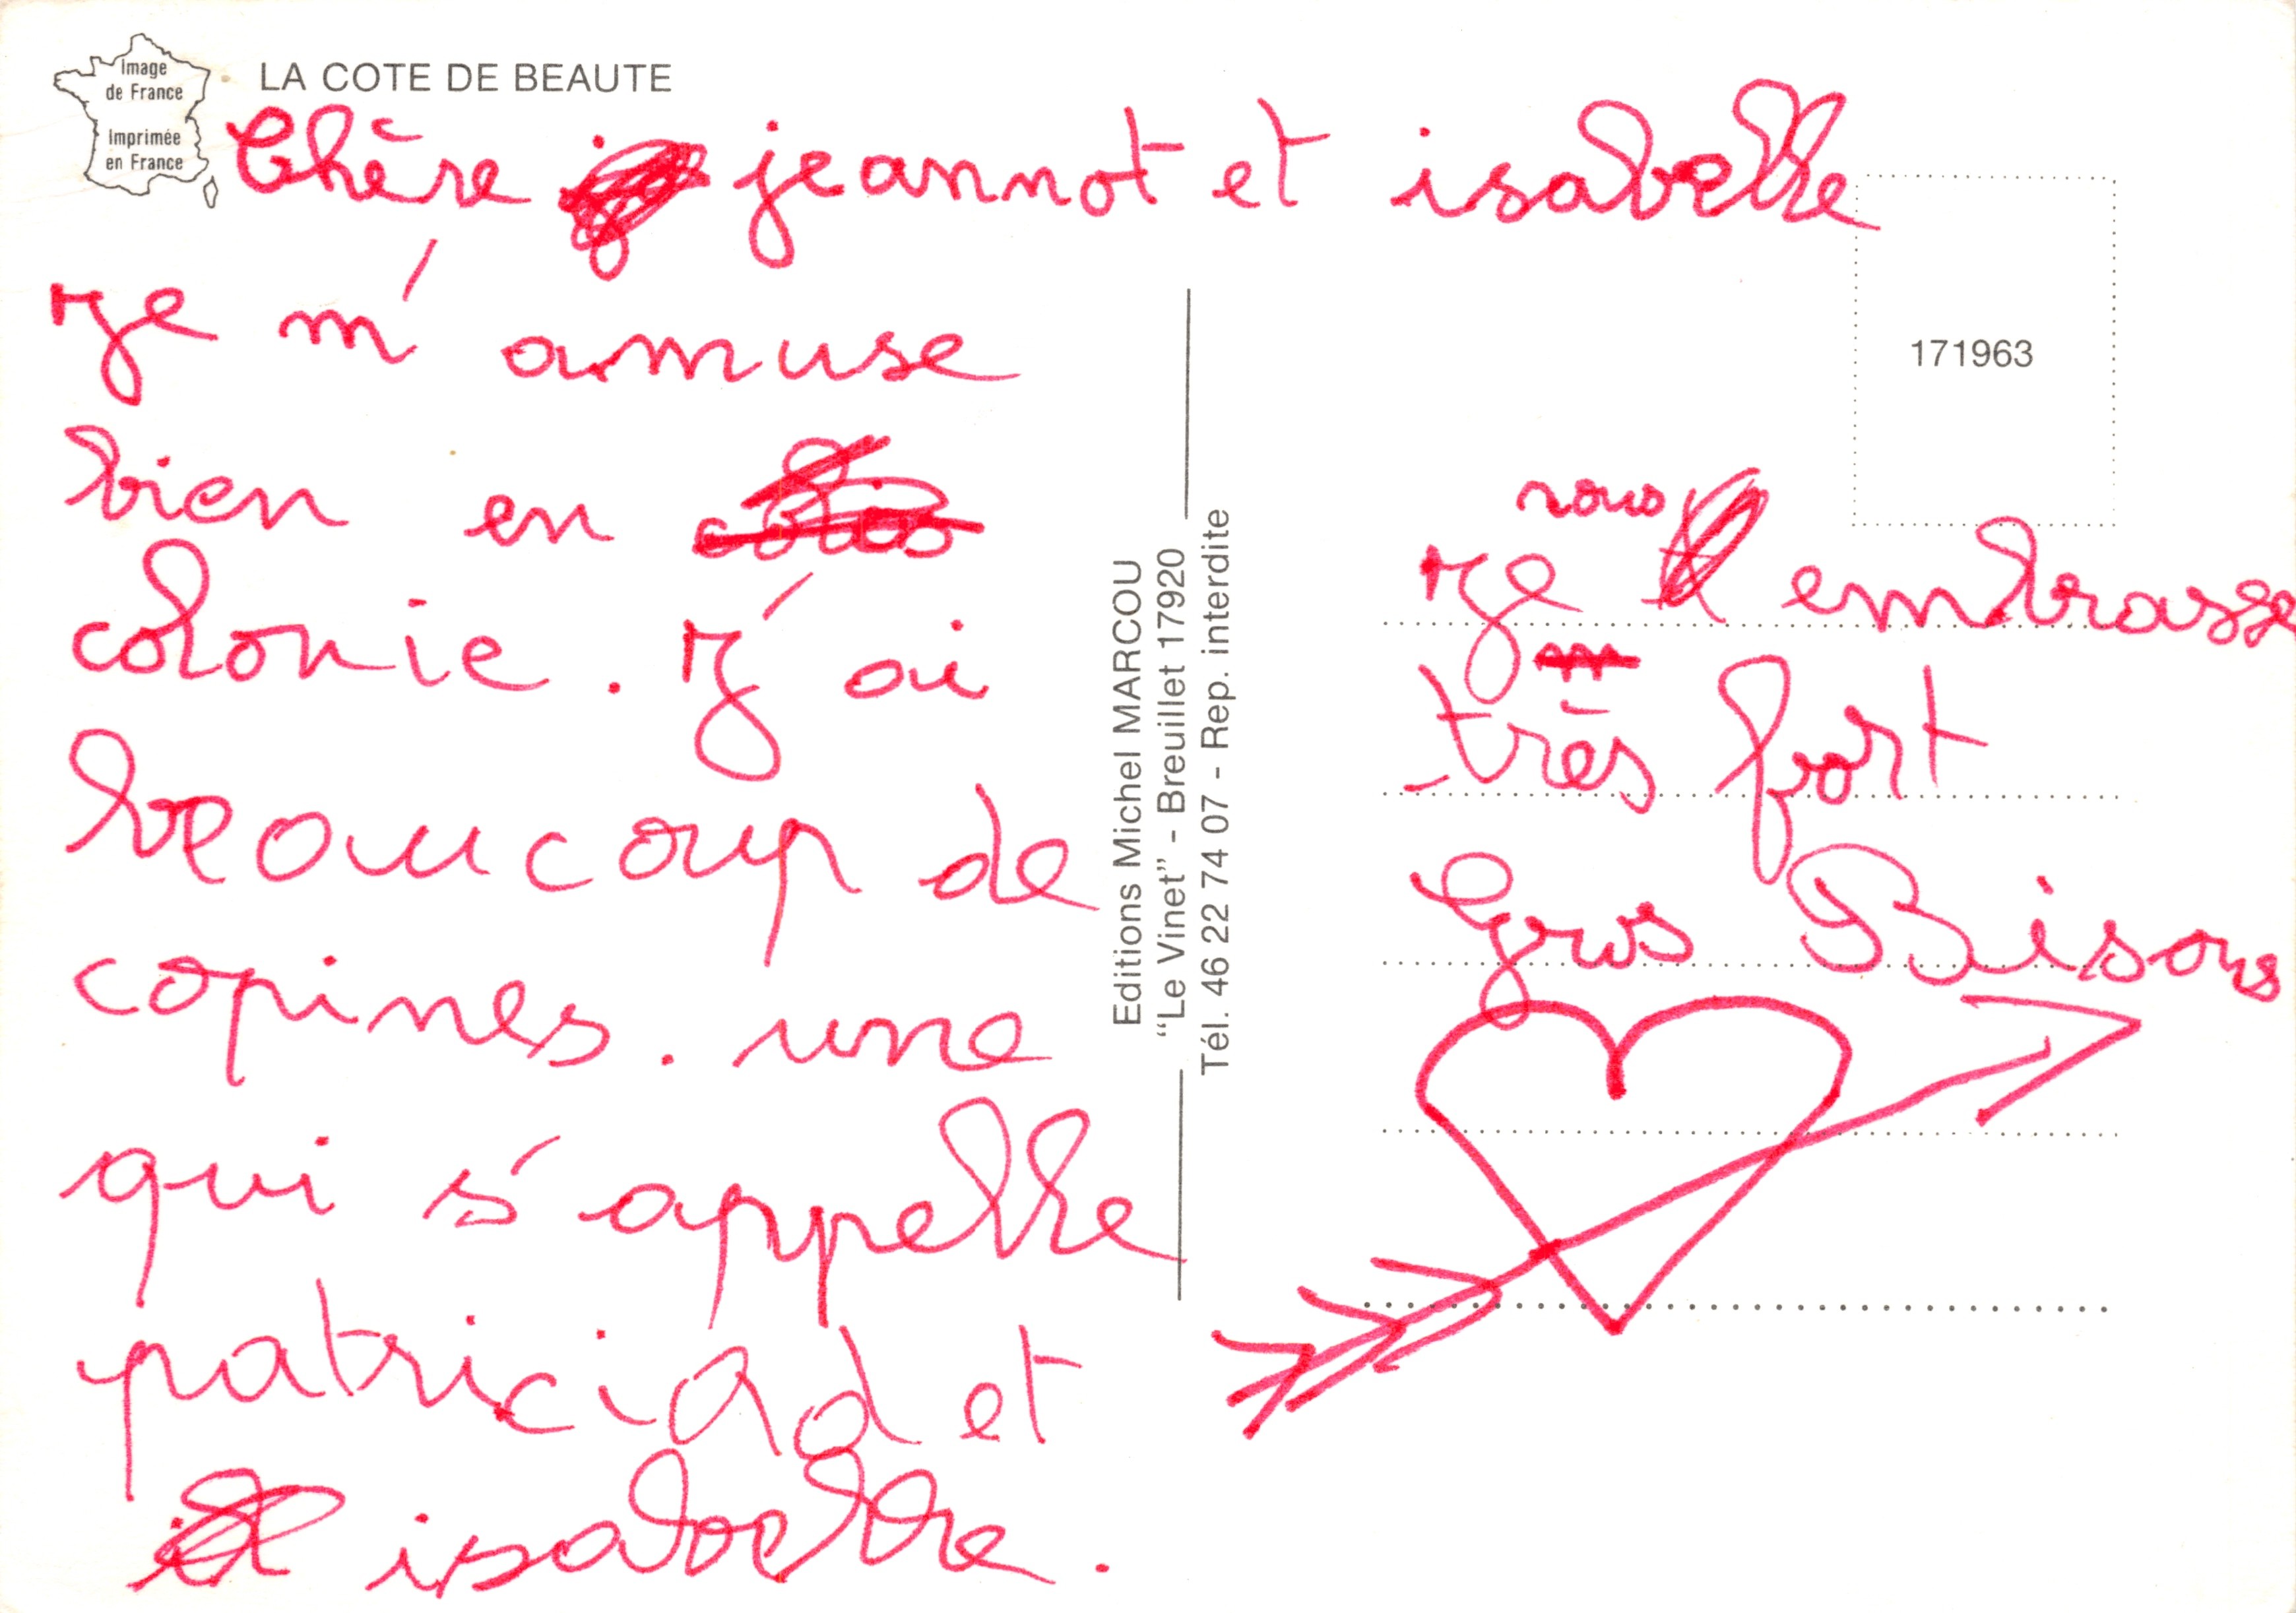 Image
de France
Imprimée
en France
LA COTE DE BEAUTE
Chère jeannot et isabelle
je m'amuse
bien en
colonie. j'ai
beaucoup de
copines. une
qui s'appelle
patriciad et
isabelle.
Editions Michel MARCOU
“Le Vinet” - Breuillet 17920
Tél. 46 22 74 07 - Rep. interdite
171963
vous
je embrasse
très fort
Gros Bisous